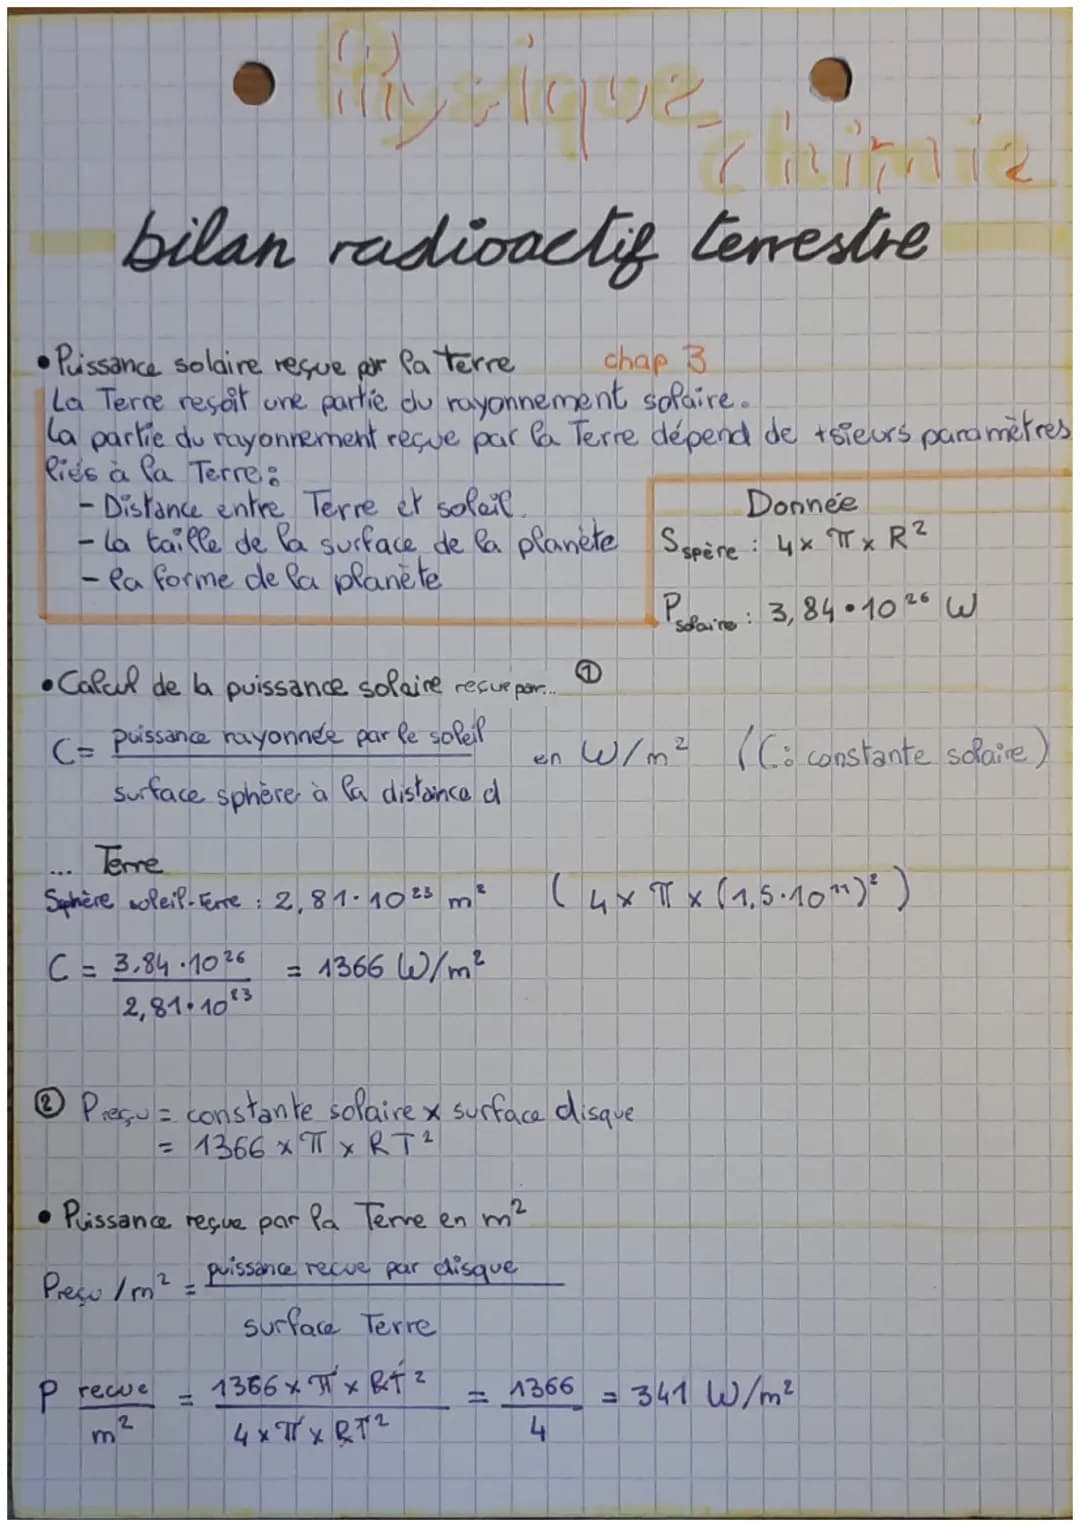 Physique
chimie
bilan radioactif terrestre
• Puissance solaire reçue par la Terre chap 3
La Terre resoit une partie du rayonnement solaire.
La partie du rayonnement reçue par la Terre dépend de +sieurs paramètres
liés à la Terre :
- Distance entre Terre et soleil.
- La taille de la surface de la planète
- la forme de la planète
Donnée
S spère : 4 x π x R²
P solaire : 3,84 • 10²⁶ W
• Calcul de la puissance solaire reçue par... ①
C = puissance rayonnée par le soleil
surface sphère à la distance d
en W/m² (C : constante solaire)
... Terre
Sphère soleil-Terre : 2,81 · 10²³ m² (4 x π x (1,5 · 10¹¹)²)
C = 3,84 · 10²⁶ = 1366 W/m²
2,81 • 10²³
② Preçu = constante solaire x surface disque
= 1366 x π x RT²
• Puissance reçue par la Terre en m²
Preçu /m² = puissance recue par disque
surface Terre
P recue = 1366 x π x RT² = 1366 = 341 W/m²
m² 4 x π x RT² 4